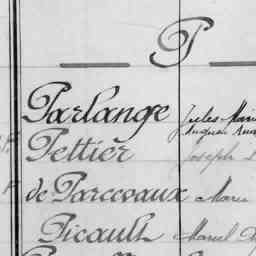 P
Parlange Jules-Marie
Auguste
Pettier Joseph
de Parcevaux Marie
Picault Marcel